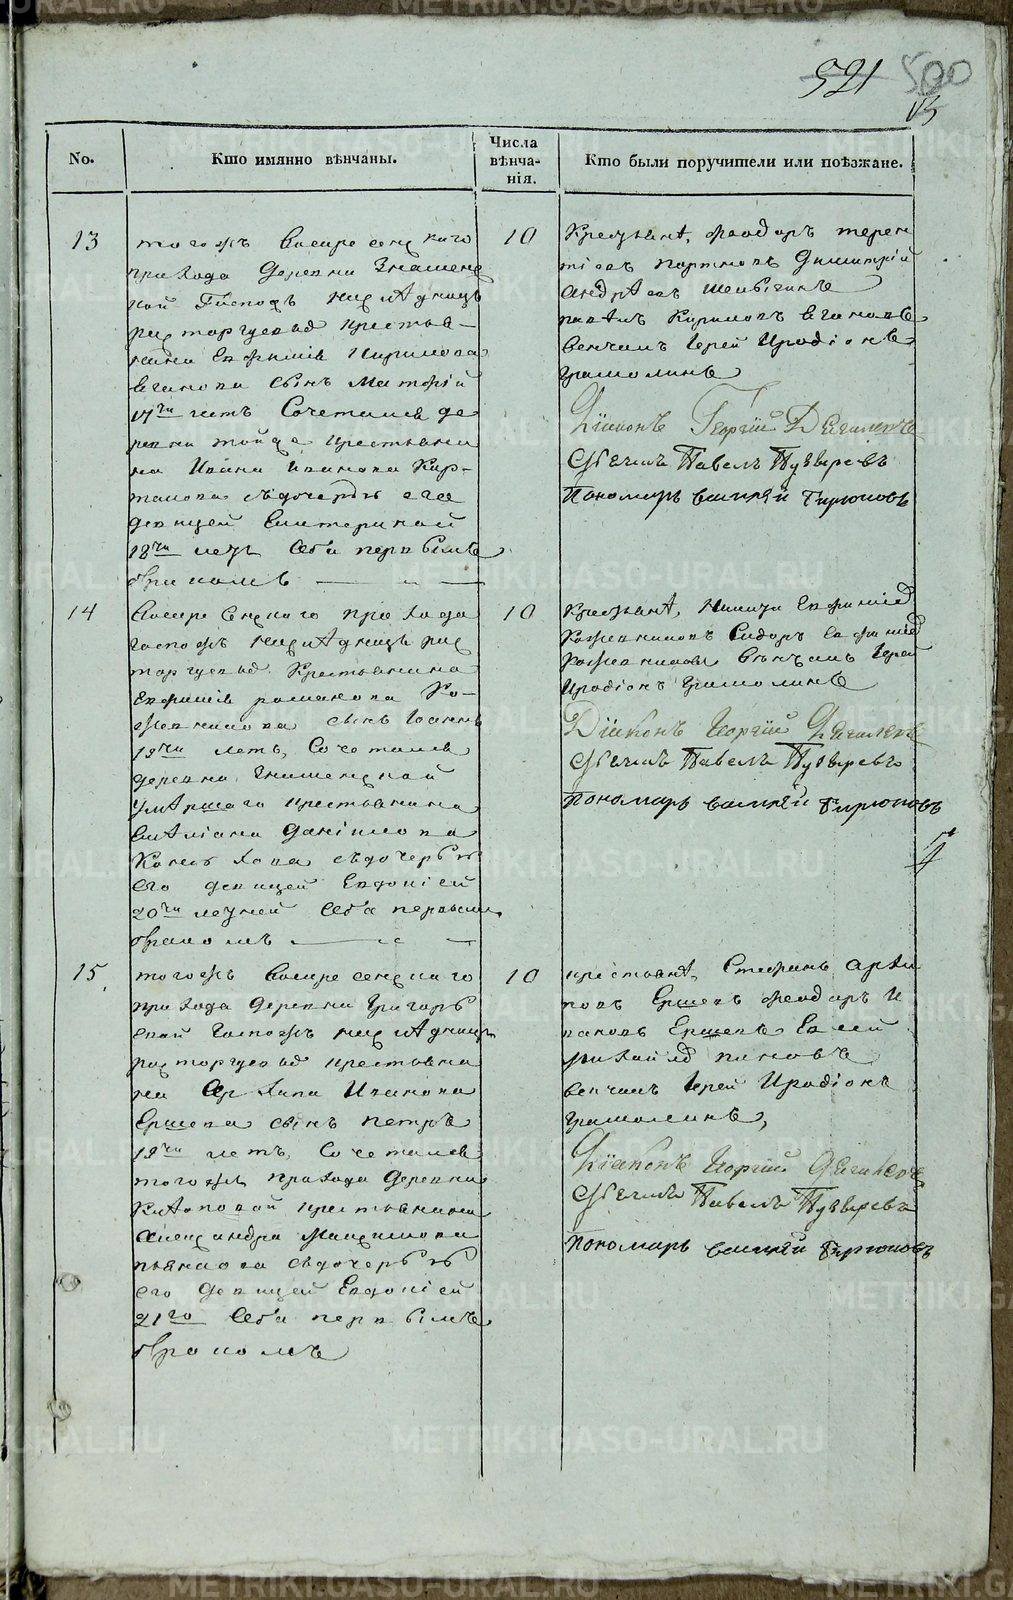 521 500
No.
Кто имянно вѣнчаны.
Числа
вѣнча-
нія.
Кто были поручители или поѣзжане.
13
тогожъ Воскресенскаго
прихода Деревни Знаменс
кой Господъ наслѣдницъ
расторгуевыхъ крестья-
нина Ефимія Кирилова
Веганова сынъ Матфій
17ти летъ Сочетался де
ревни тойже крестьяни
на Ивана Иванова Кар-
талова съдочерью его
девицей Екатериной
18ти летъ оба первымъ
бракомъ
10
Крестьянѣ, Феодоръ терен
тіевъ портновъ Димитрій
андрѣевъ
павелъ Кириловъ вегановъ
венчалъ Іерей Иродіонъ
грамолинъ
Діаконъ Георгій Дягилевъ
Дьячекъ Павелъ Пузыревъ
Пономарь василій Бирюковъ
14
Воскресенскаго прихода
господъ наслѣдницъ рас
торгуевыхъ Крестьянина
Ефимія романова Ко-
жевникова сынъ Іоаннъ
19ти летъ, Сочетался
деревни Знаменской
умѣршаго крестьянина
Емѣліана Даніилова
съдочерью
его девицей Евдокіей
20ти летней оба первымъ
бракомъ
10
Крестьянѣ, Никита Ефиміевъ
Кожевниковъ Сидоръ Ефиміевъ
Кожевниковы Вѣнчалъ Іерей
Иродіонъ Грамолинъ
Діаконъ Георгій Дягилевъ
Дьячекъ Павелъ Пузыревъ
Пономарь василій Бирюковъ
15
тогожъ Воскресенскаго
прихода Деревни Григорь
евой Господъ наслѣдницъ
расторгуевыхъ крестьяни
на Архипа Иванова
Ершева сынъ Петръ
19ти летъ, Сочетался
тогожъ прихода Деревни
крестьянина
Александра Максимова
съдочерью
его девицей Евдокіей
21го оба первымъ
бракомъ
10
крестьянѣ, Стефанъ архи
повъ Ершевъ феодоръ И
вановъ Ершевъ Евсей
михайловъ пановъ
венчалъ Іерей Иродіонъ
грамолинъ,
Діаконъ Георгій Дягилевъ
Дьячекъ Павелъ Пузыревъ
Пономарь василій Бирюковъ
METRIKI.GASO-URAL.RU